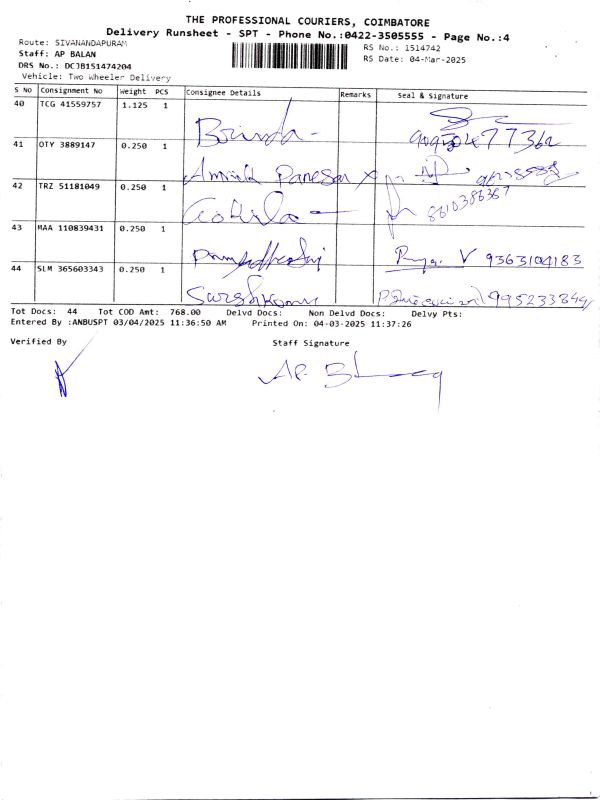 THE PROFESSIONAL COURIERS, COIMBATORE
Delivery Runsheet - SPT - Phone No.:0422-3505555 - Page No.:4
Route: SIVANANDAPURAM
RS No.: 1514742
Staff: AP BALAN
RS Date: 04-Mar-2025
DRS No.: DCJB151474204
Vehicle: Two Wheeler Delivery
S No Consignment No Weight PCS Consignee Details Remarks Seal & Signature
40 TCG 41559757 1.125 1
Brinda -
41 OTY 3889147 0.250 1
42 TRZ 51181049 0.250 1
Gokila -
8610386387
43 MAA 110839431 0.250 1
V 9363104183
44 SLM 365603343 0.250 1
Tot Docs: 44 Tot COD Amt: 768.00 Delvd Docs: Non Delvd Docs: Delvy Pts:
Entered By :ANBUSPT 03/04/2025 11:36:50 AM Printed On: 04-03-2025 11:37:26
Verified By Staff Signature